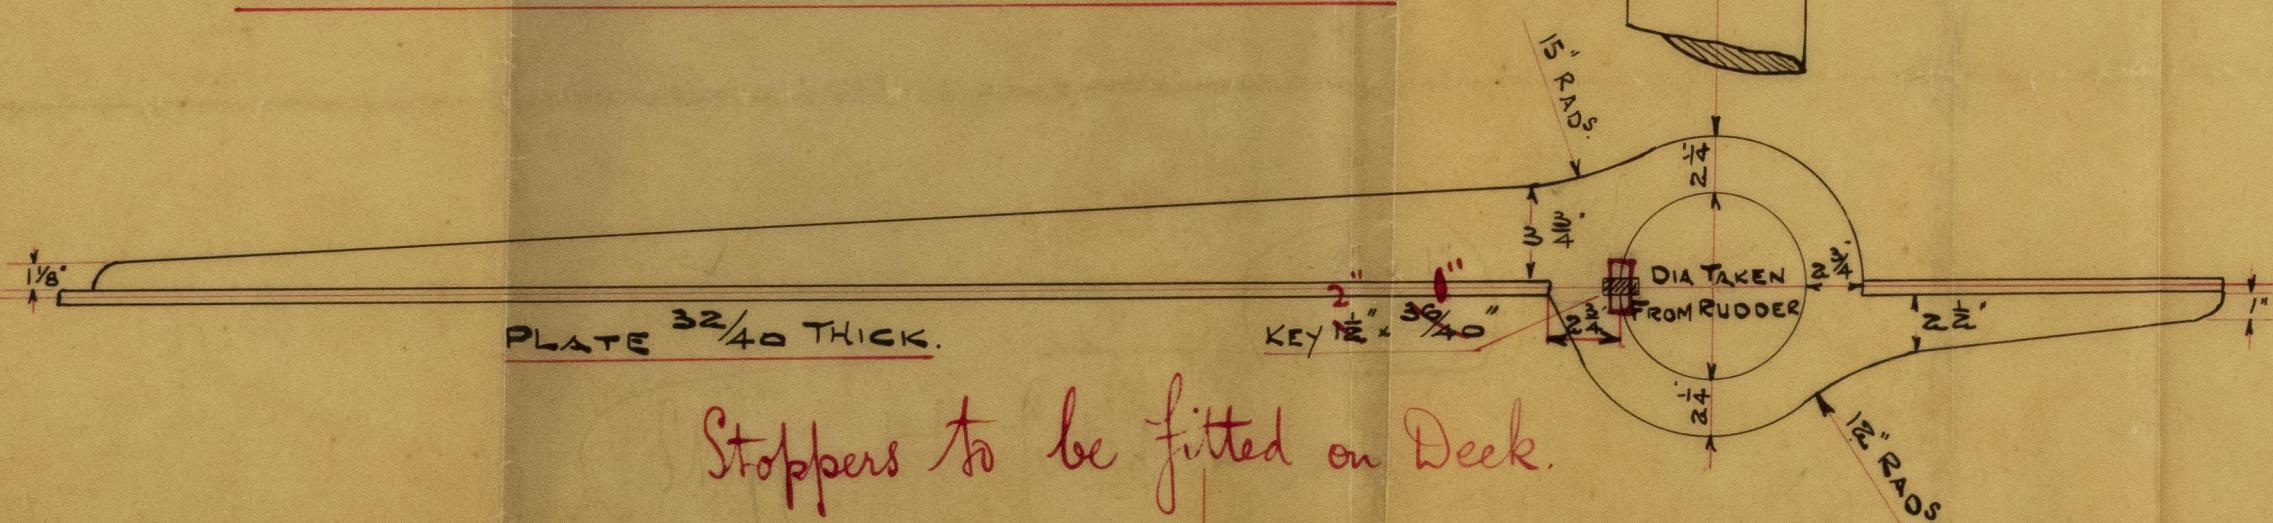 15" RADS.
2 1/4
1 1/8"
3 3/4"
2" 1"
DIA TAKEN
FROM RUDDER
2 3/4"
2 3/4"
2 1/2"
1"
PLATE 32/40 THICK.
KEY 1 1/2" × 36/40"
2 1/4
12" RADS
Stoppers to be fitted on Deck.